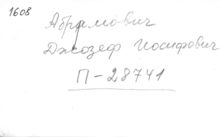 1608
Абрамович
Джозеф Иосифович
П-28741